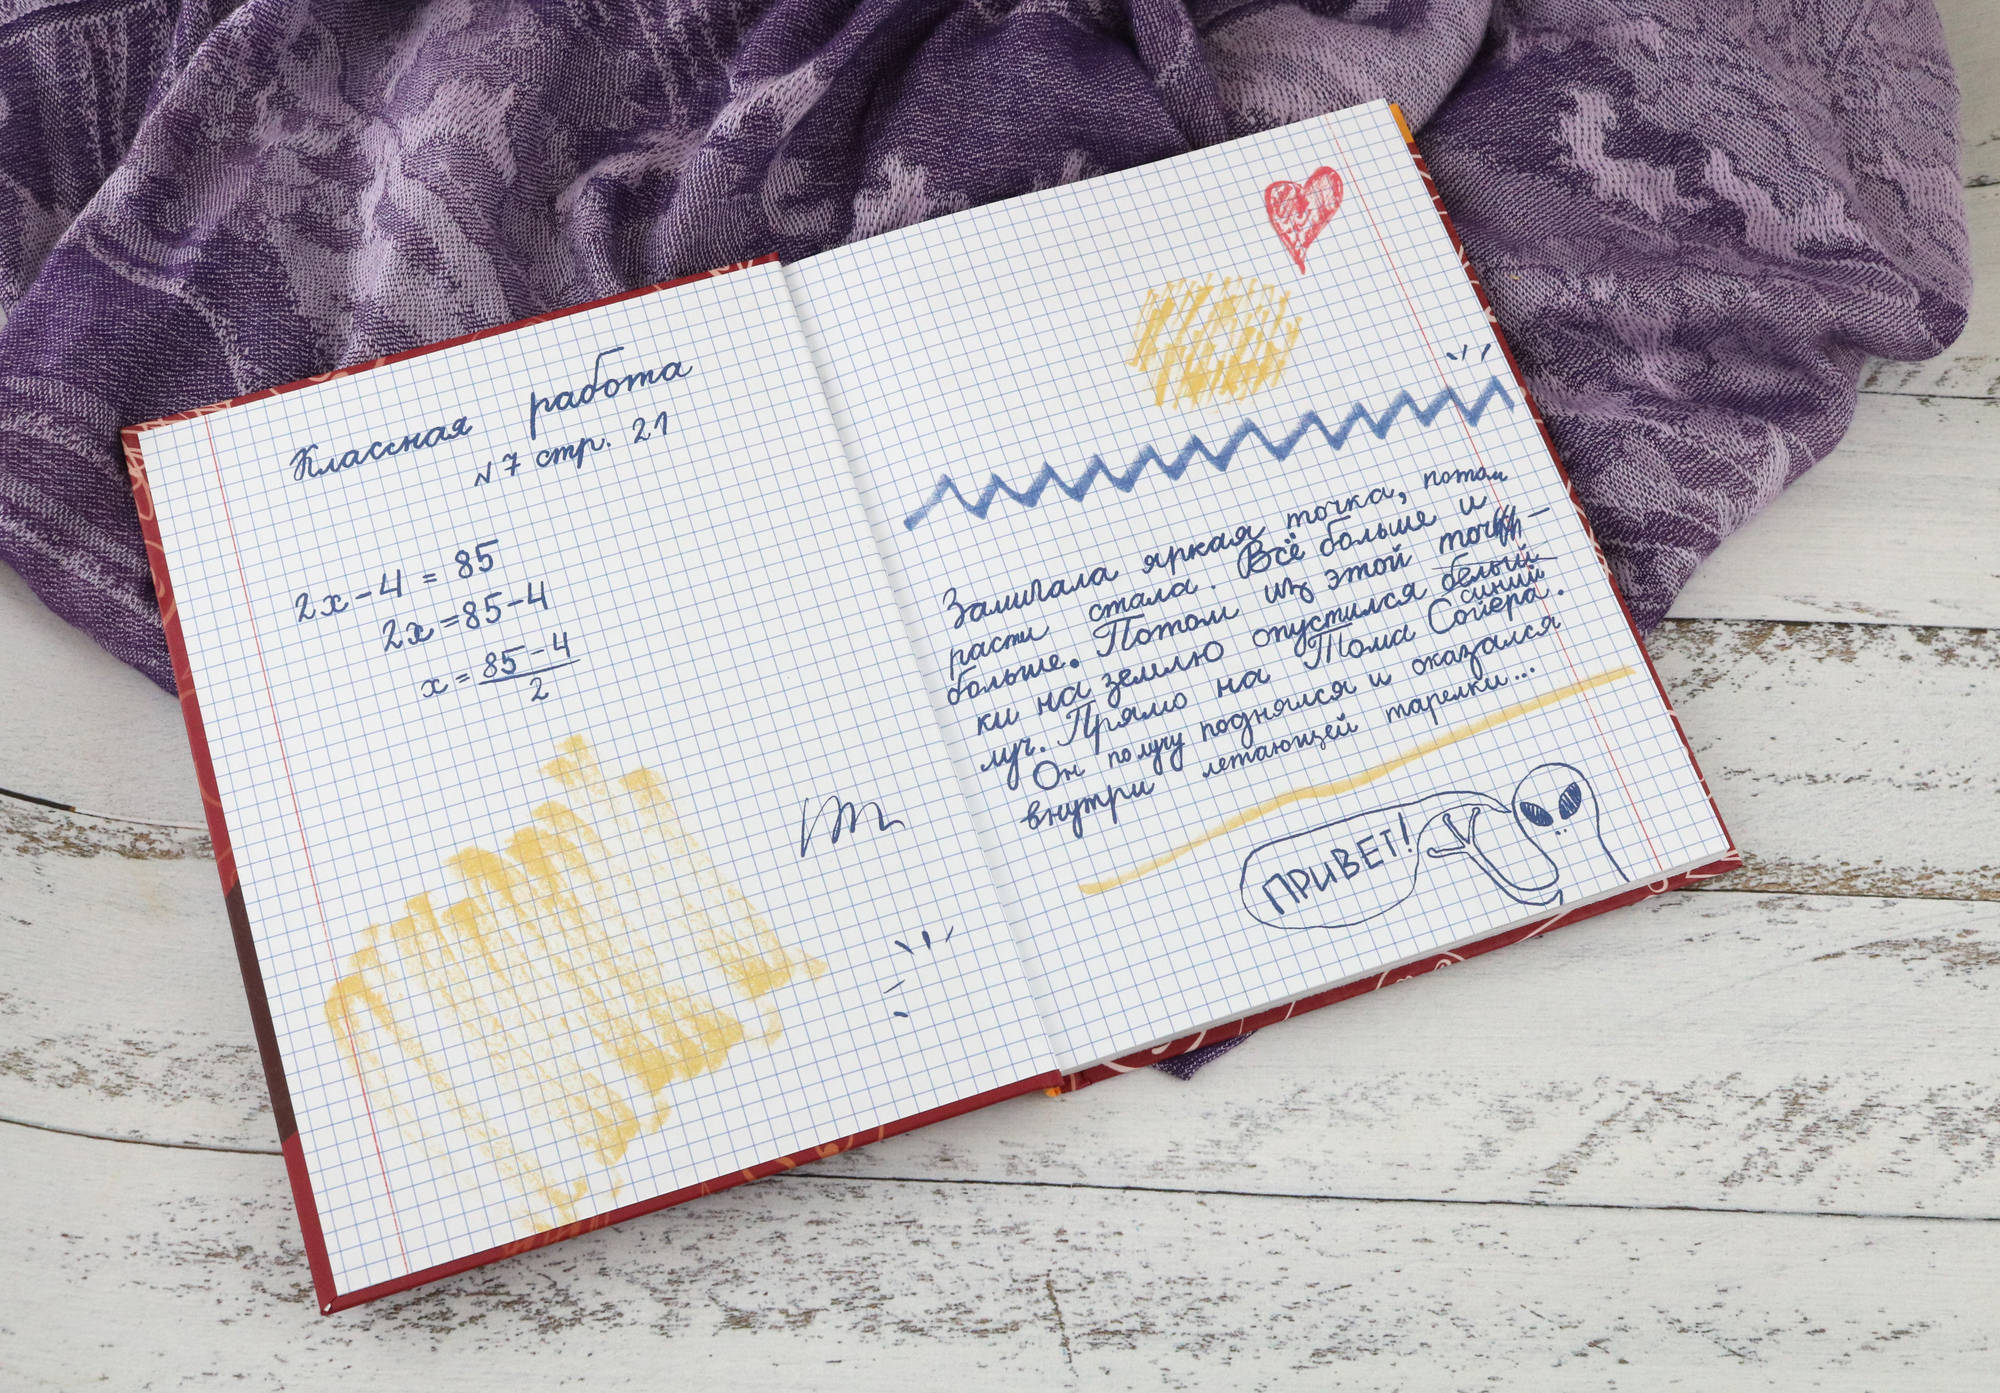 Классная работа
№7 стр. 21
2x-4=85
2x=85-4
x=85-4/2
Замигала яркая точка, потом
расти стала. Всё больше и
больше. Потом из этой точ-
ки на землю опустился белый синий
луч. Прямо на Тома Сойера.
Он по лучу поднялся и оказался
внутри летающей тарелки...
ПРИВЕТ!